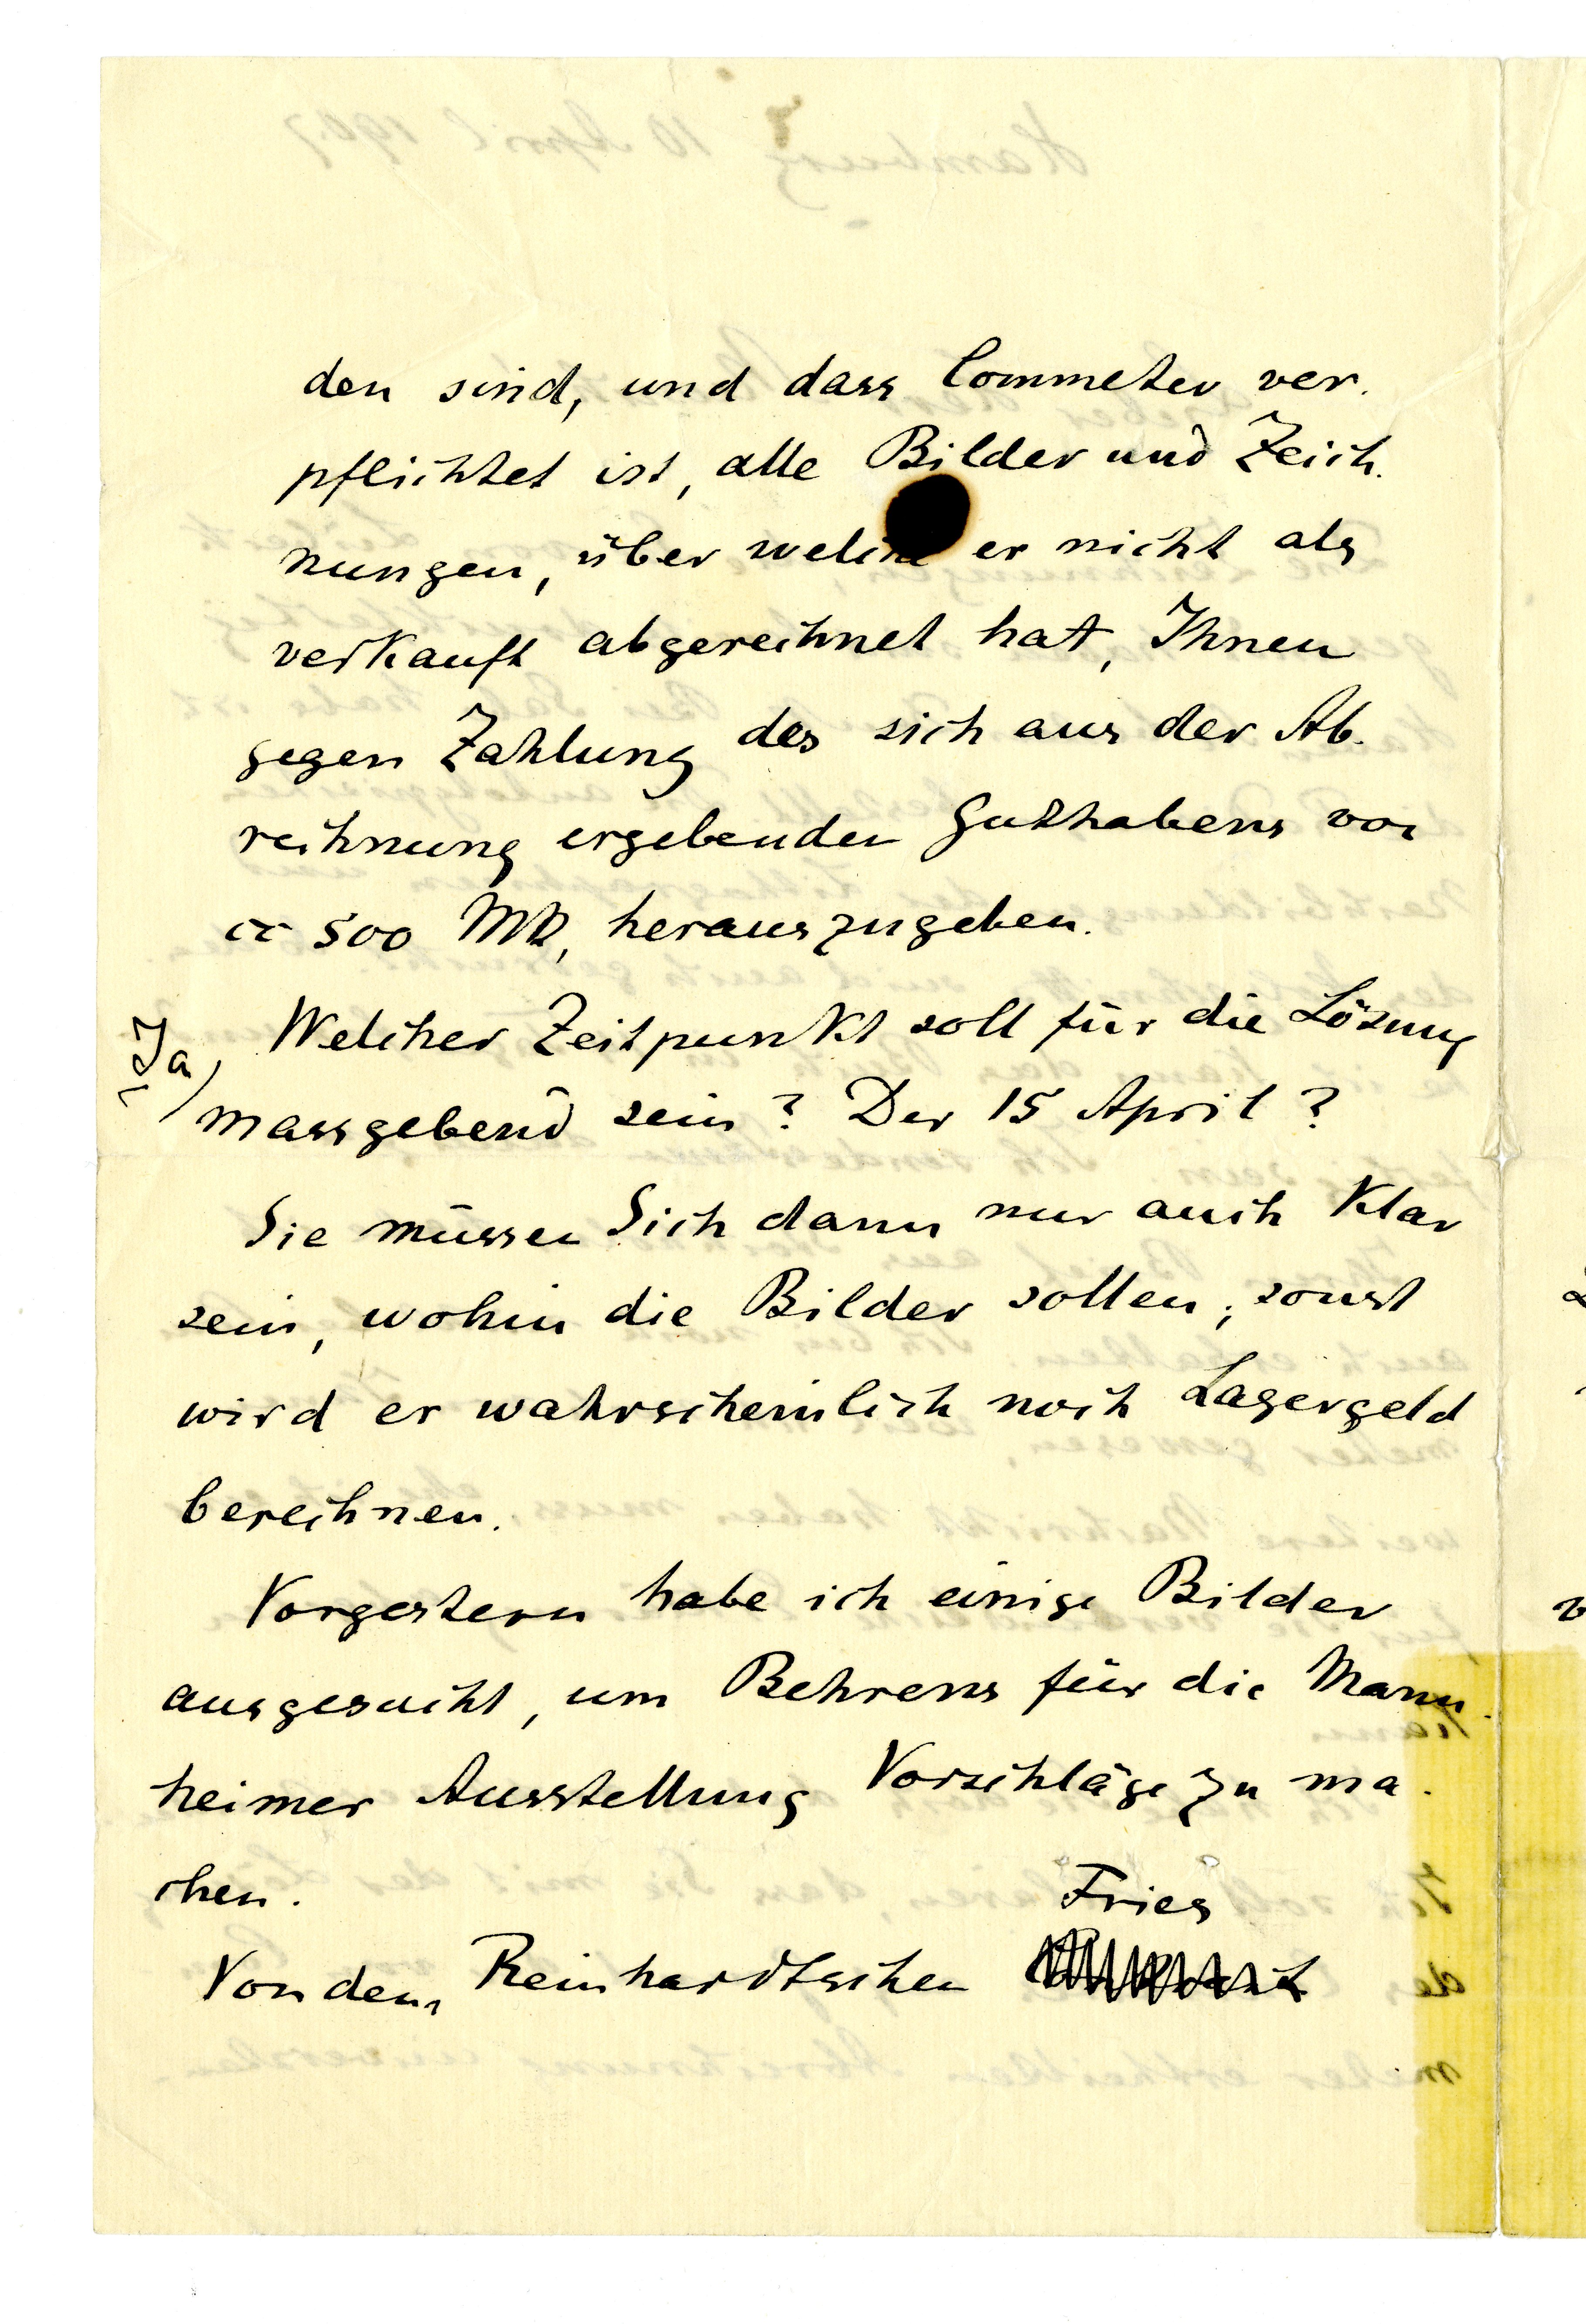 den sind, und dass Commeter ver-
pflichtet ist, alle Bilder und Zeich-
nungen, über welche er nicht als
verkauft abgerechnet hat, Ihnen
gegen Zahlung des sich aus der Ab-
rechnung ergebenden Guthabens von
cc 500 Mk, herauszugeben.
Welcher Zeitpunkt soll für die Lösung
Ja
massgebend sein? Der 15 April?
Sie müssen Sich dann nur auch klar
sein, wohin die Bilder sollen; sonst
wird er wahrscheinlich noch Lagergeld
berechnen.
Vorgestern habe ich einige Bilder
ausgesucht, um Behrens für die Mann-
heimer Ausstellung Vorschläge zu ma-
chen.
Fries
Von dem Reinhardtschen